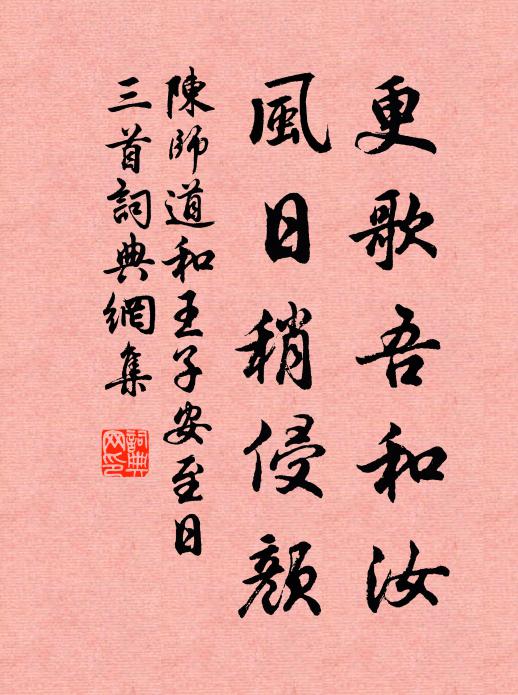 更歌吾和汝
風日稍侵顏
陳師道和王子安至日
三首詞典網集
詞典
网印